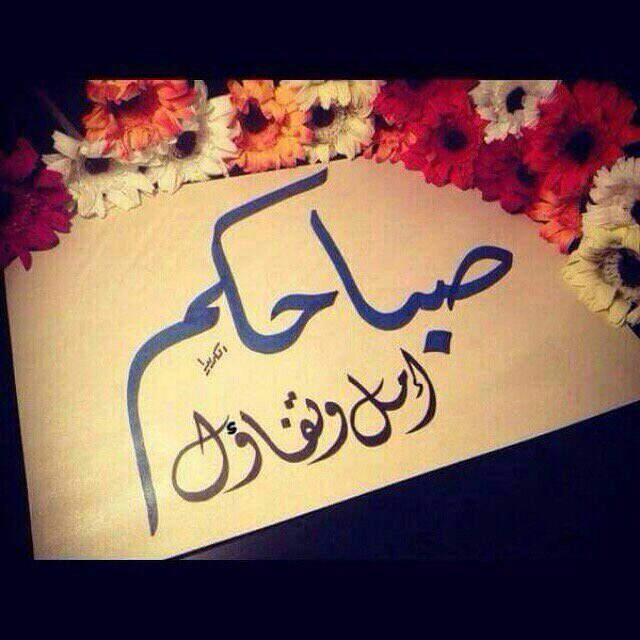 صباحكم
إمل وتفاؤل